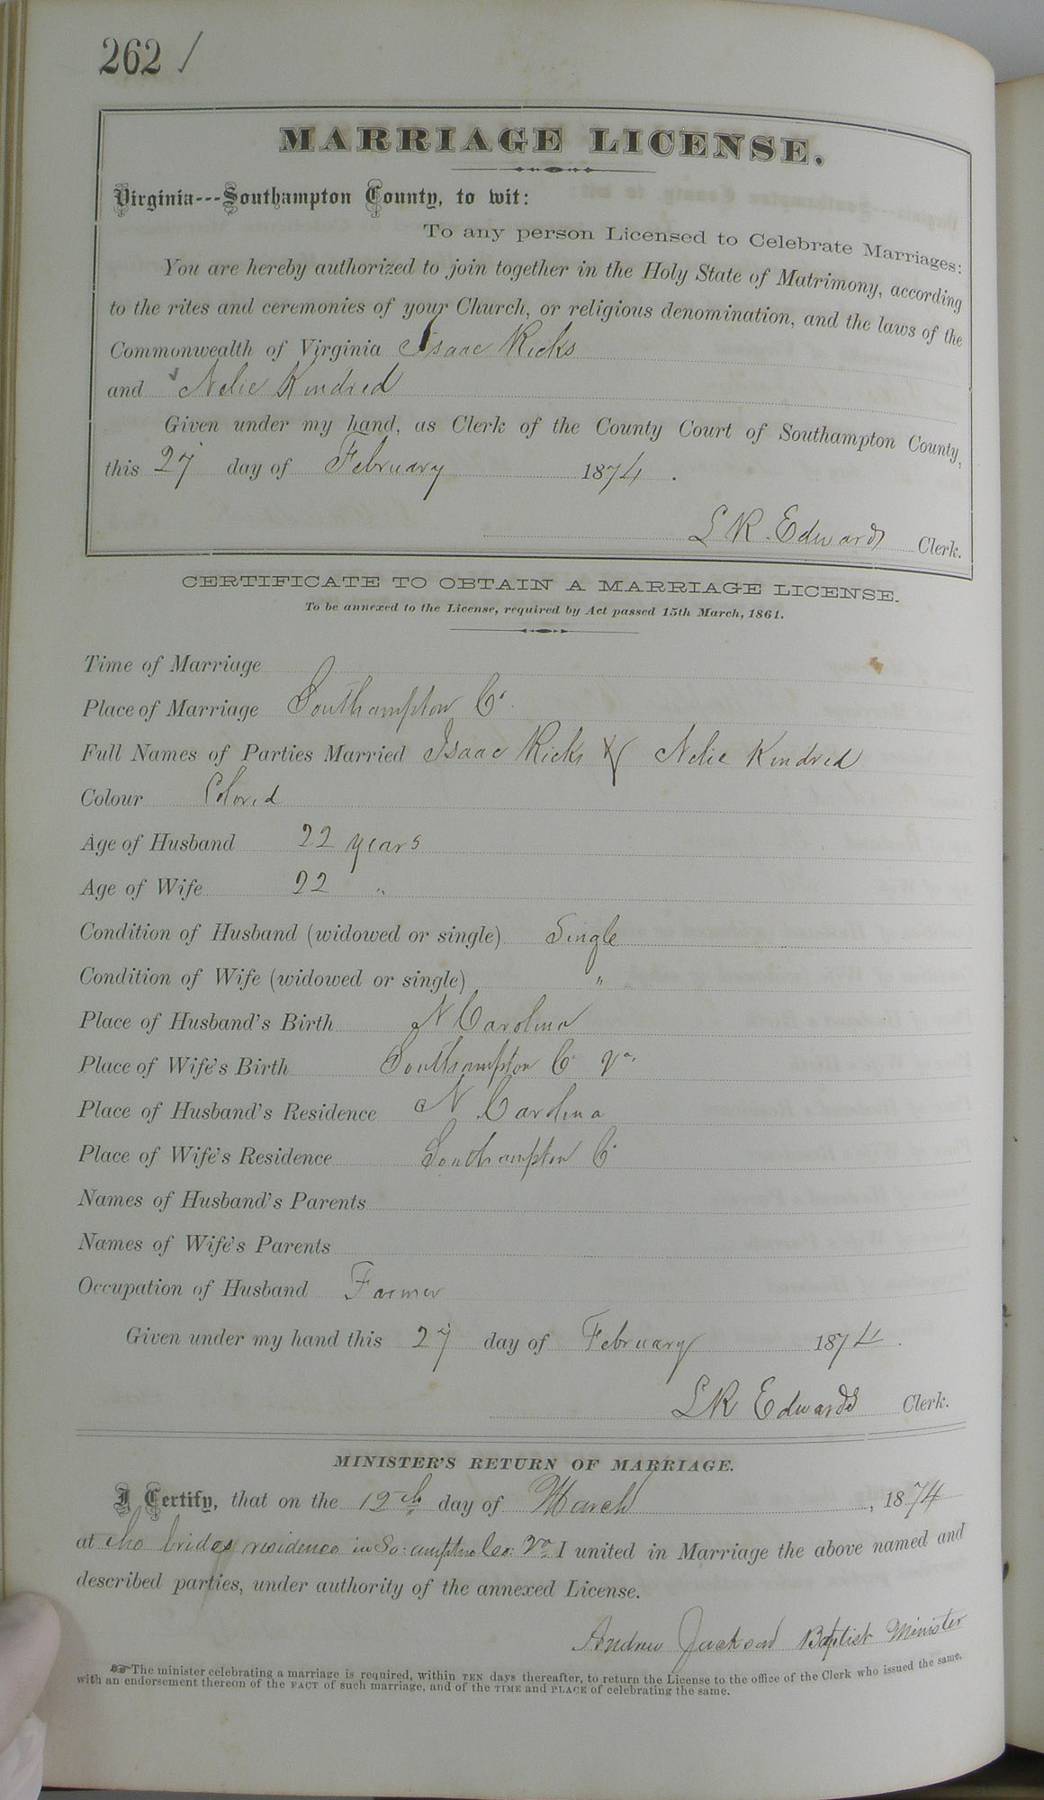 262 /
MARRIAGE LICENSE.
Virginia---Southampton County, to wit:
To any person Licensed to Celebrate Marriages:
You are hereby authorized to join together in the Holy State of Matrimony, according
to the rites and ceremonies of your Church, or religious denomination, and the laws of the
Commonwealth of Virginia Isaac Ricks
and Nelie Kindred
Given under my hand, as Clerk of the County Court of Southampton County,
this 27 day of February 1874.
L R. Edwards Clerk.
CERTIFICATE TO OBTAIN A MARRIAGE LICENSE.
To be annexed to the License, required by Act passed 15th March, 1861.
Time of Marriage
Place of Marriage Southampton Co.
Full Names of Parties Married Isaac Ricks & Nelie Kindred
Colour Colored
Age of Husband 22 years
Age of Wife 22 "
Condition of Husband (widowed or single) Single
Condition of Wife (widowed or single) "
Place of Husband's Birth N Carolina
Place of Wife's Birth Southampton Co Va.
Place of Husband's Residence N Carolina
Place of Wife's Residence Southampton Co
Names of Husband's Parents
Names of Wife's Parents
Occupation of Husband Farmer
Given under my hand this 27 day of February 1874.
L R Edwards Clerk.
MINISTER'S RETURN OF MARRIAGE.
I Certify, that on the 12th day of March, 1874
at the brides residence in So:ampton Co: Va I united in Marriage the above named and
described parties, under authority of the annexed License.
Andrew Jackson Baptist Minister
The minister celebrating a marriage is required, within TEN days thereafter, to return the License to the office of the Clerk who issued the same,
with an endorsement thereon of the FACT of such marriage, and of the TIME and PLACE of celebrating the same.